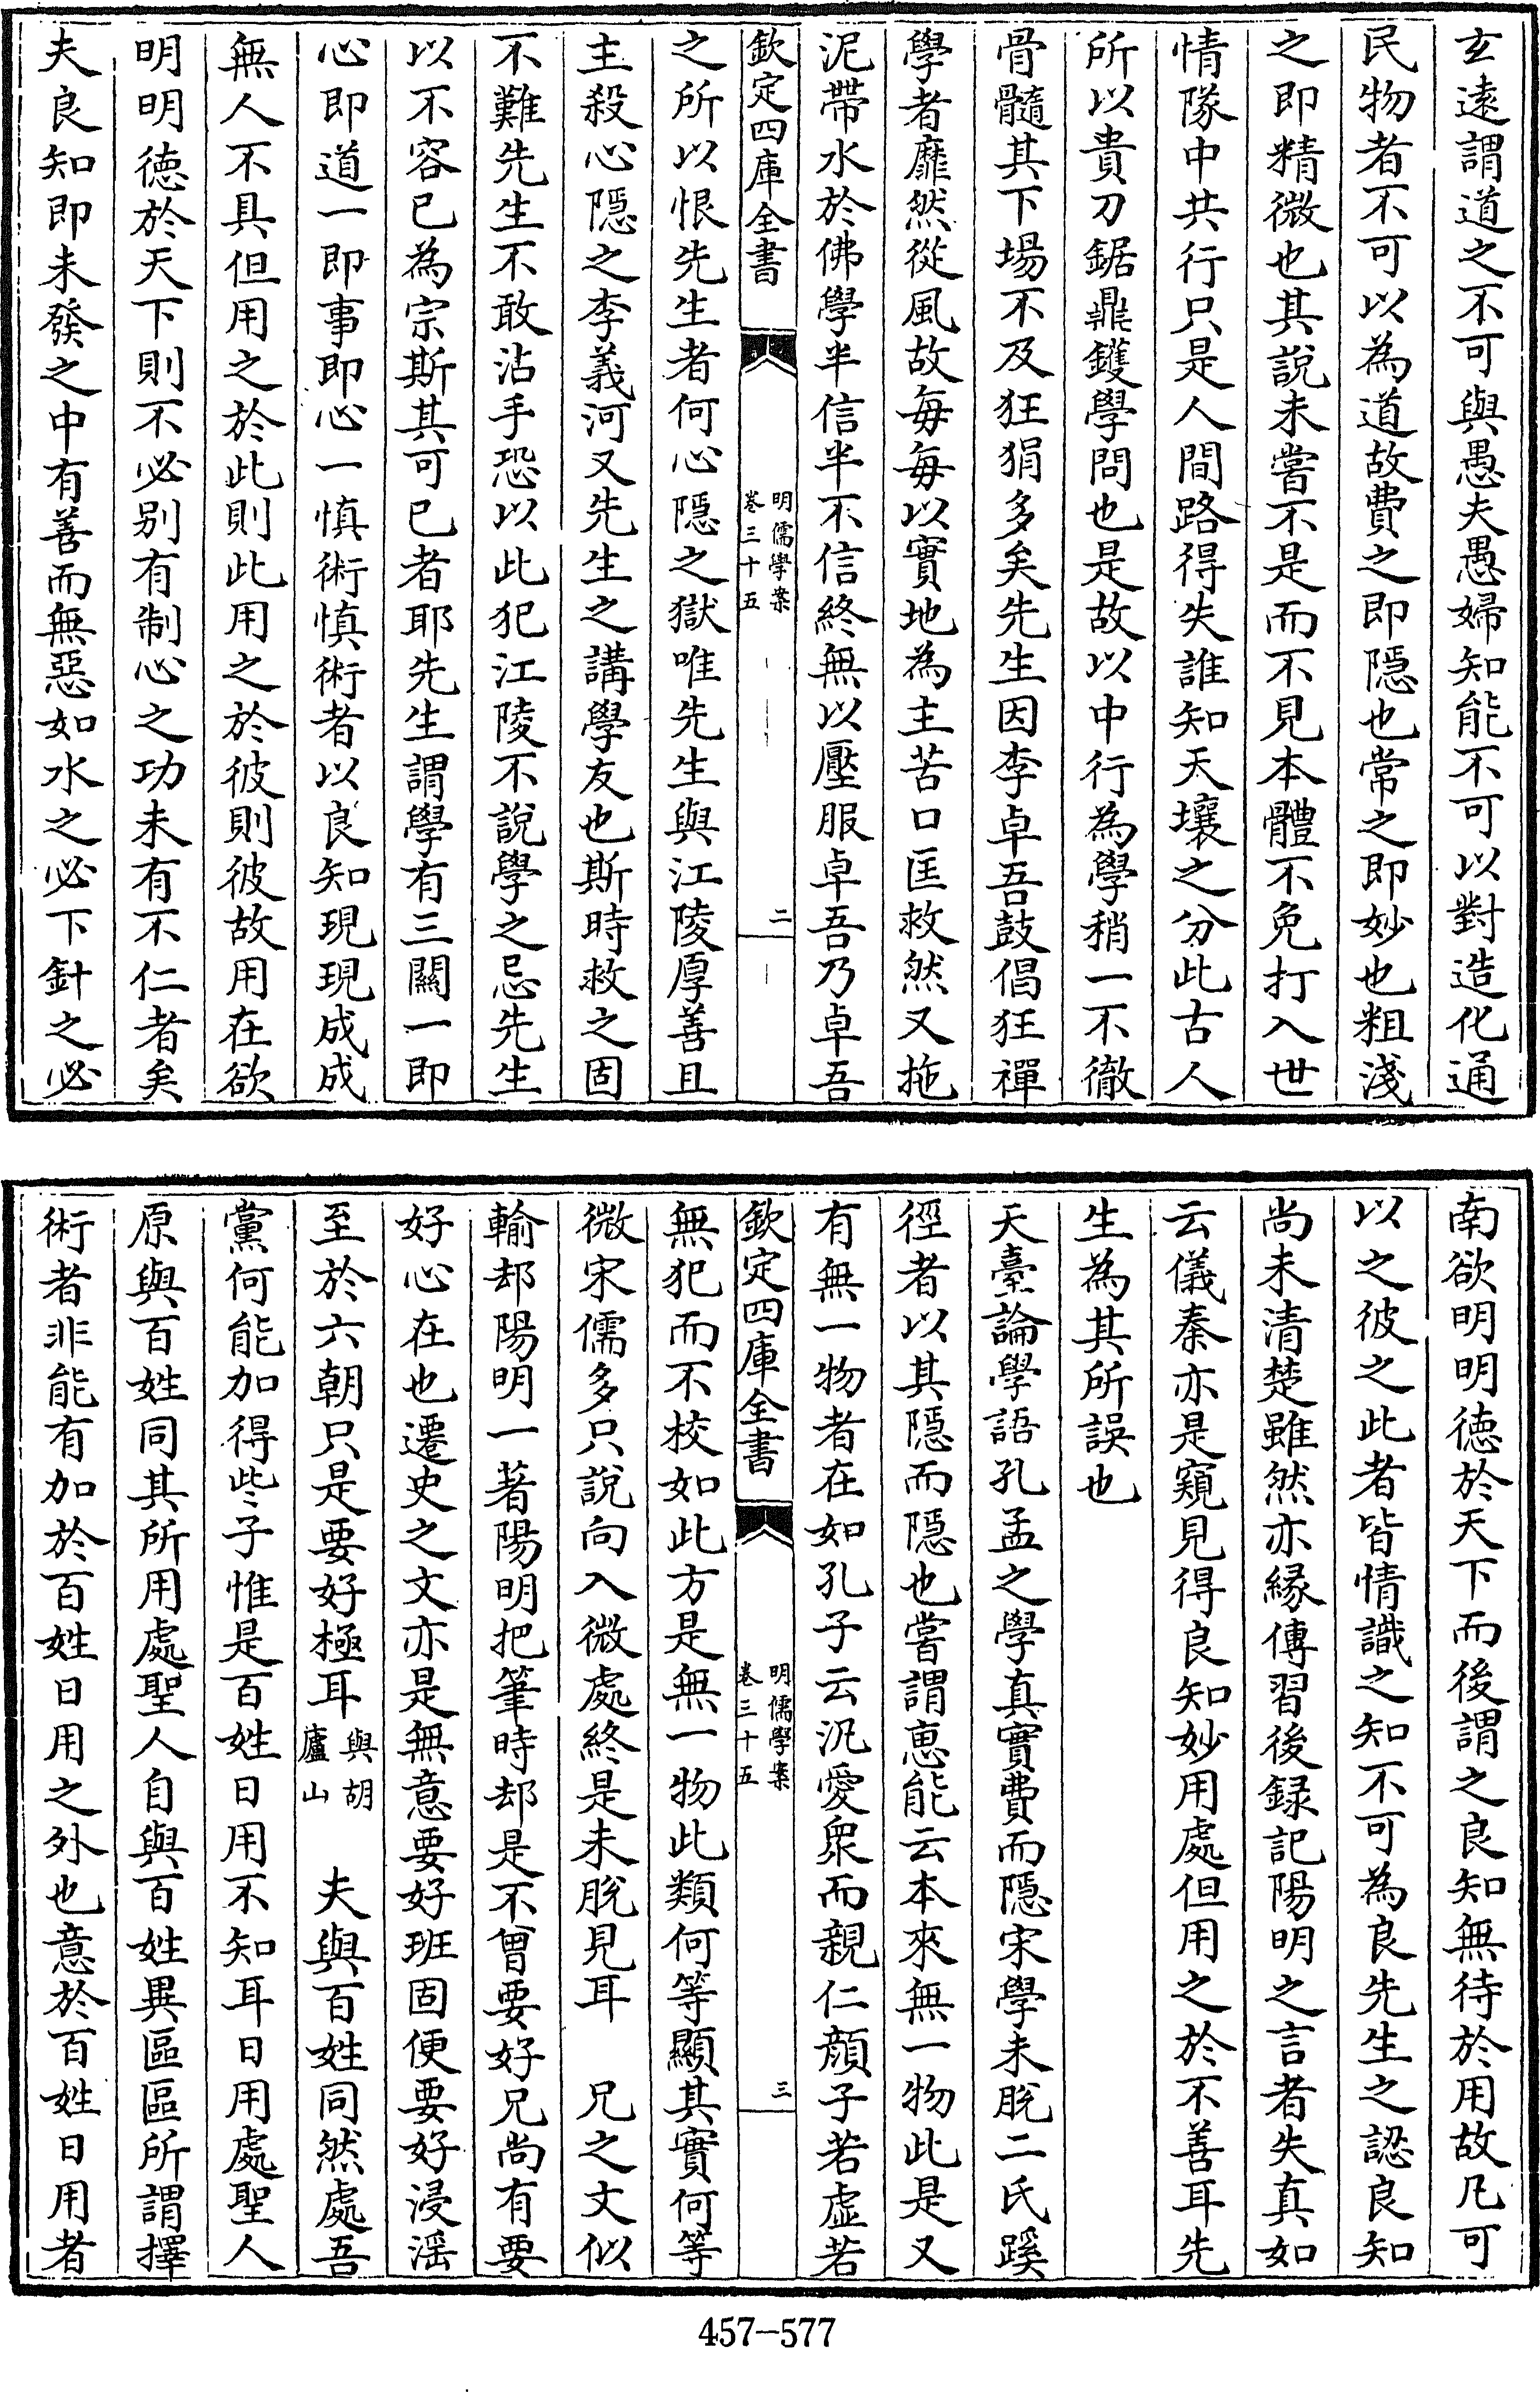 玄遠謂道之不可與愚夫愚婦知能不可以對造化通
民物者不可以為道故費之即隱也常之即妙也粗淺
之即精微也其說未嘗不是而不見本體不免打入世
情隊中共行只是人間路得失誰知天壤之分此古人
所以貴刀鋸鼎鑊學問也是故以中行為學稍一不徹
骨髓其下場不及狂狷多矣先生因李卓吾鼓倡狂禪
學者靡然從風故每每以實地為主苦口匡救然又拖
泥帶水於佛學半信半不信終無以壓服卓吾乃卓吾
欽定四庫全書
明儒學案
卷三十五
二
之所以恨先生者何心隱之獄唯先生與江陵厚善且
主殺心隱之李義河又先生之講學友也斯時救之固
不難先生不敢沾手恐以此犯江陵不說學之忌先生
以不容已為宗斯其可已者耶先生謂學有三關一即
心即道一即事即心一慎術慎術者以良知現現成成
無人不具但用之於此則此用之於彼則彼故用在欲
明明德於天下則不必別有制心之功未有不仁者矣
夫良知即未發之中有善而無惡如水之必下針之必
南欲明明德於天下而後謂之良知無待於用故凡可
以之彼之此者皆情識之知不可為良先生之認良知
尚未清楚雖然亦緣傳習後録記陽明之言者失真如
云儀秦亦是窺見得良知妙用處但用之於不善耳先
生為其所誤也
天臺論學語孔孟之學真實費而隱宋學未脫二氏蹊
徑者以其隱而隱也嘗謂恵能云本來無一物此是又
有無一物者在如孔子云汎愛衆而親仁顔子若虛若
欽定四庫全書
明儒學案
卷三十五
三
無犯而不校如此方是無一物此類何等顯其實何等
微宋儒多只說向入微處終是未脫見耳　兄之文似
輸却陽明一著陽明把筆時却是不曾要好兄尚有要
好心在也遷史之文亦是無意要好班固便要好浸淫
至於六朝只是要好極耳與胡廬山　夫與百姓同然處吾
黨何能加得些子惟是百姓日用不知耳日用處聖人
原與百姓同其所用處聖人自與百姓異區區所謂擇
術者非能有加於百姓日用之外也意於百姓日用者
457-577